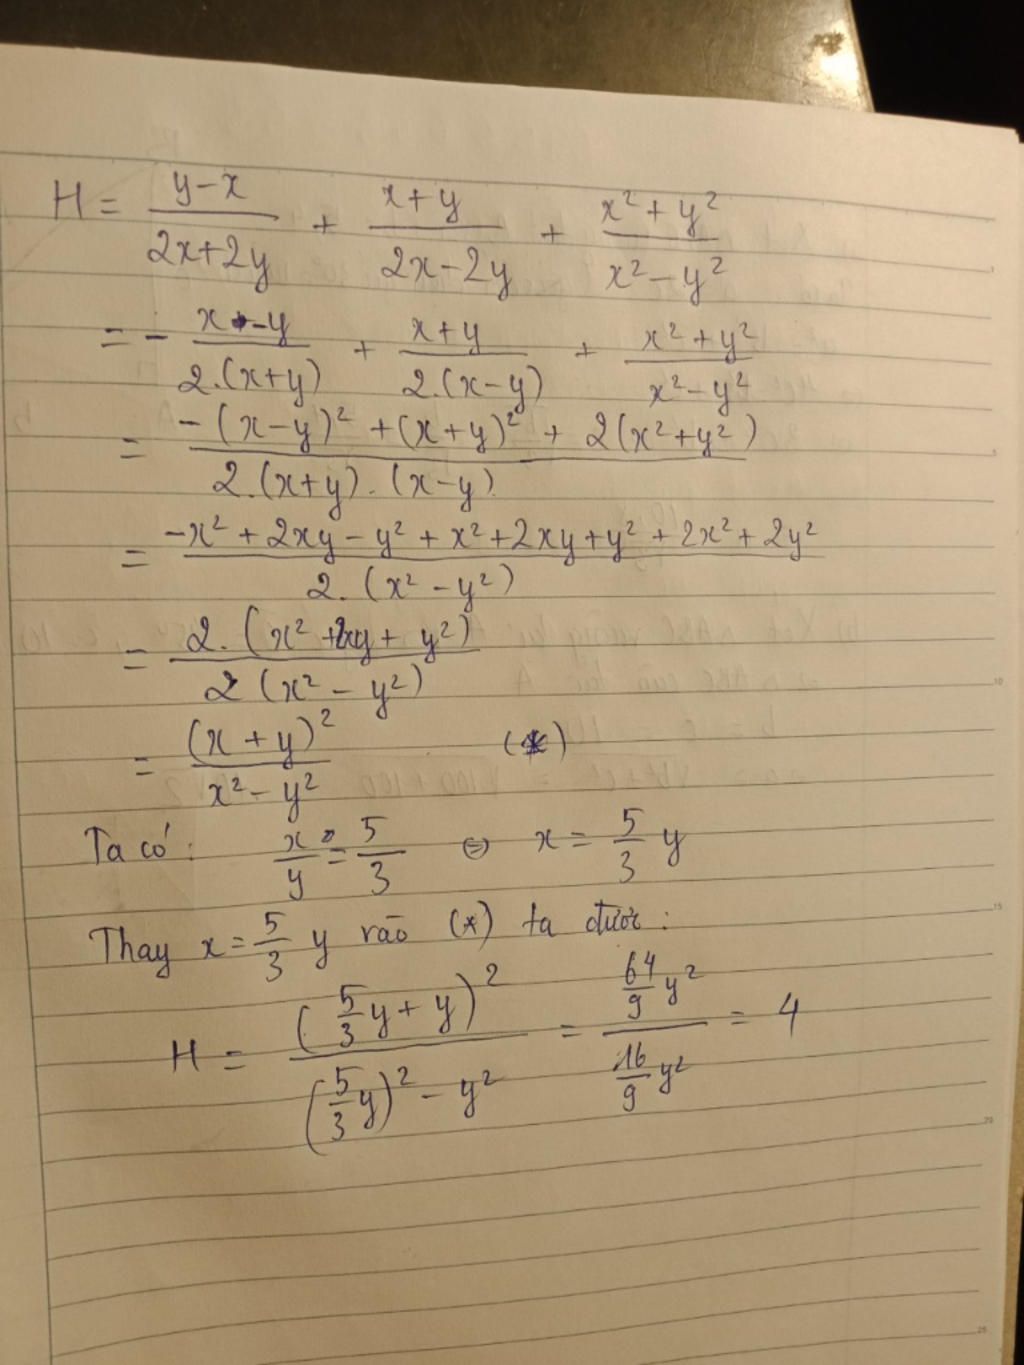 H = \frac{y-x}{2x+2y} + \frac{x+y}{2x-2y} + \frac{x^2+y^2}{x^2-y^2}
= - \frac{x-y}{2.(x+y)} + \frac{x+y}{2.(x-y)} + \frac{x^2+y^2}{x^2-y^2}
= \frac{-(x-y)^2+(x+y)^2+2(x^2+y^2)}{2.(x+y).(x-y)}
= \frac{-x^2+2xy-y^2+x^2+2xy+y^2+2x^2+2y^2}{2.(x^2-y^2)}
= \frac{2.(x^2+2xy+y^2)}{2(x^2-y^2)}
= \frac{(x+y)^2}{x^2-y^2} (*)
Ta có: \frac{x}{y} = \frac{5}{3} ⇔ x = \frac{5}{3} y
Thay x = \frac{5}{3} y vào (*) ta được:
H = \frac{(\frac{5}{3}y+y)^2}{(\frac{5}{3}y)^2-y^2} = \frac{\frac{64}{9}y^2}{\frac{16}{9}y^2} = 4